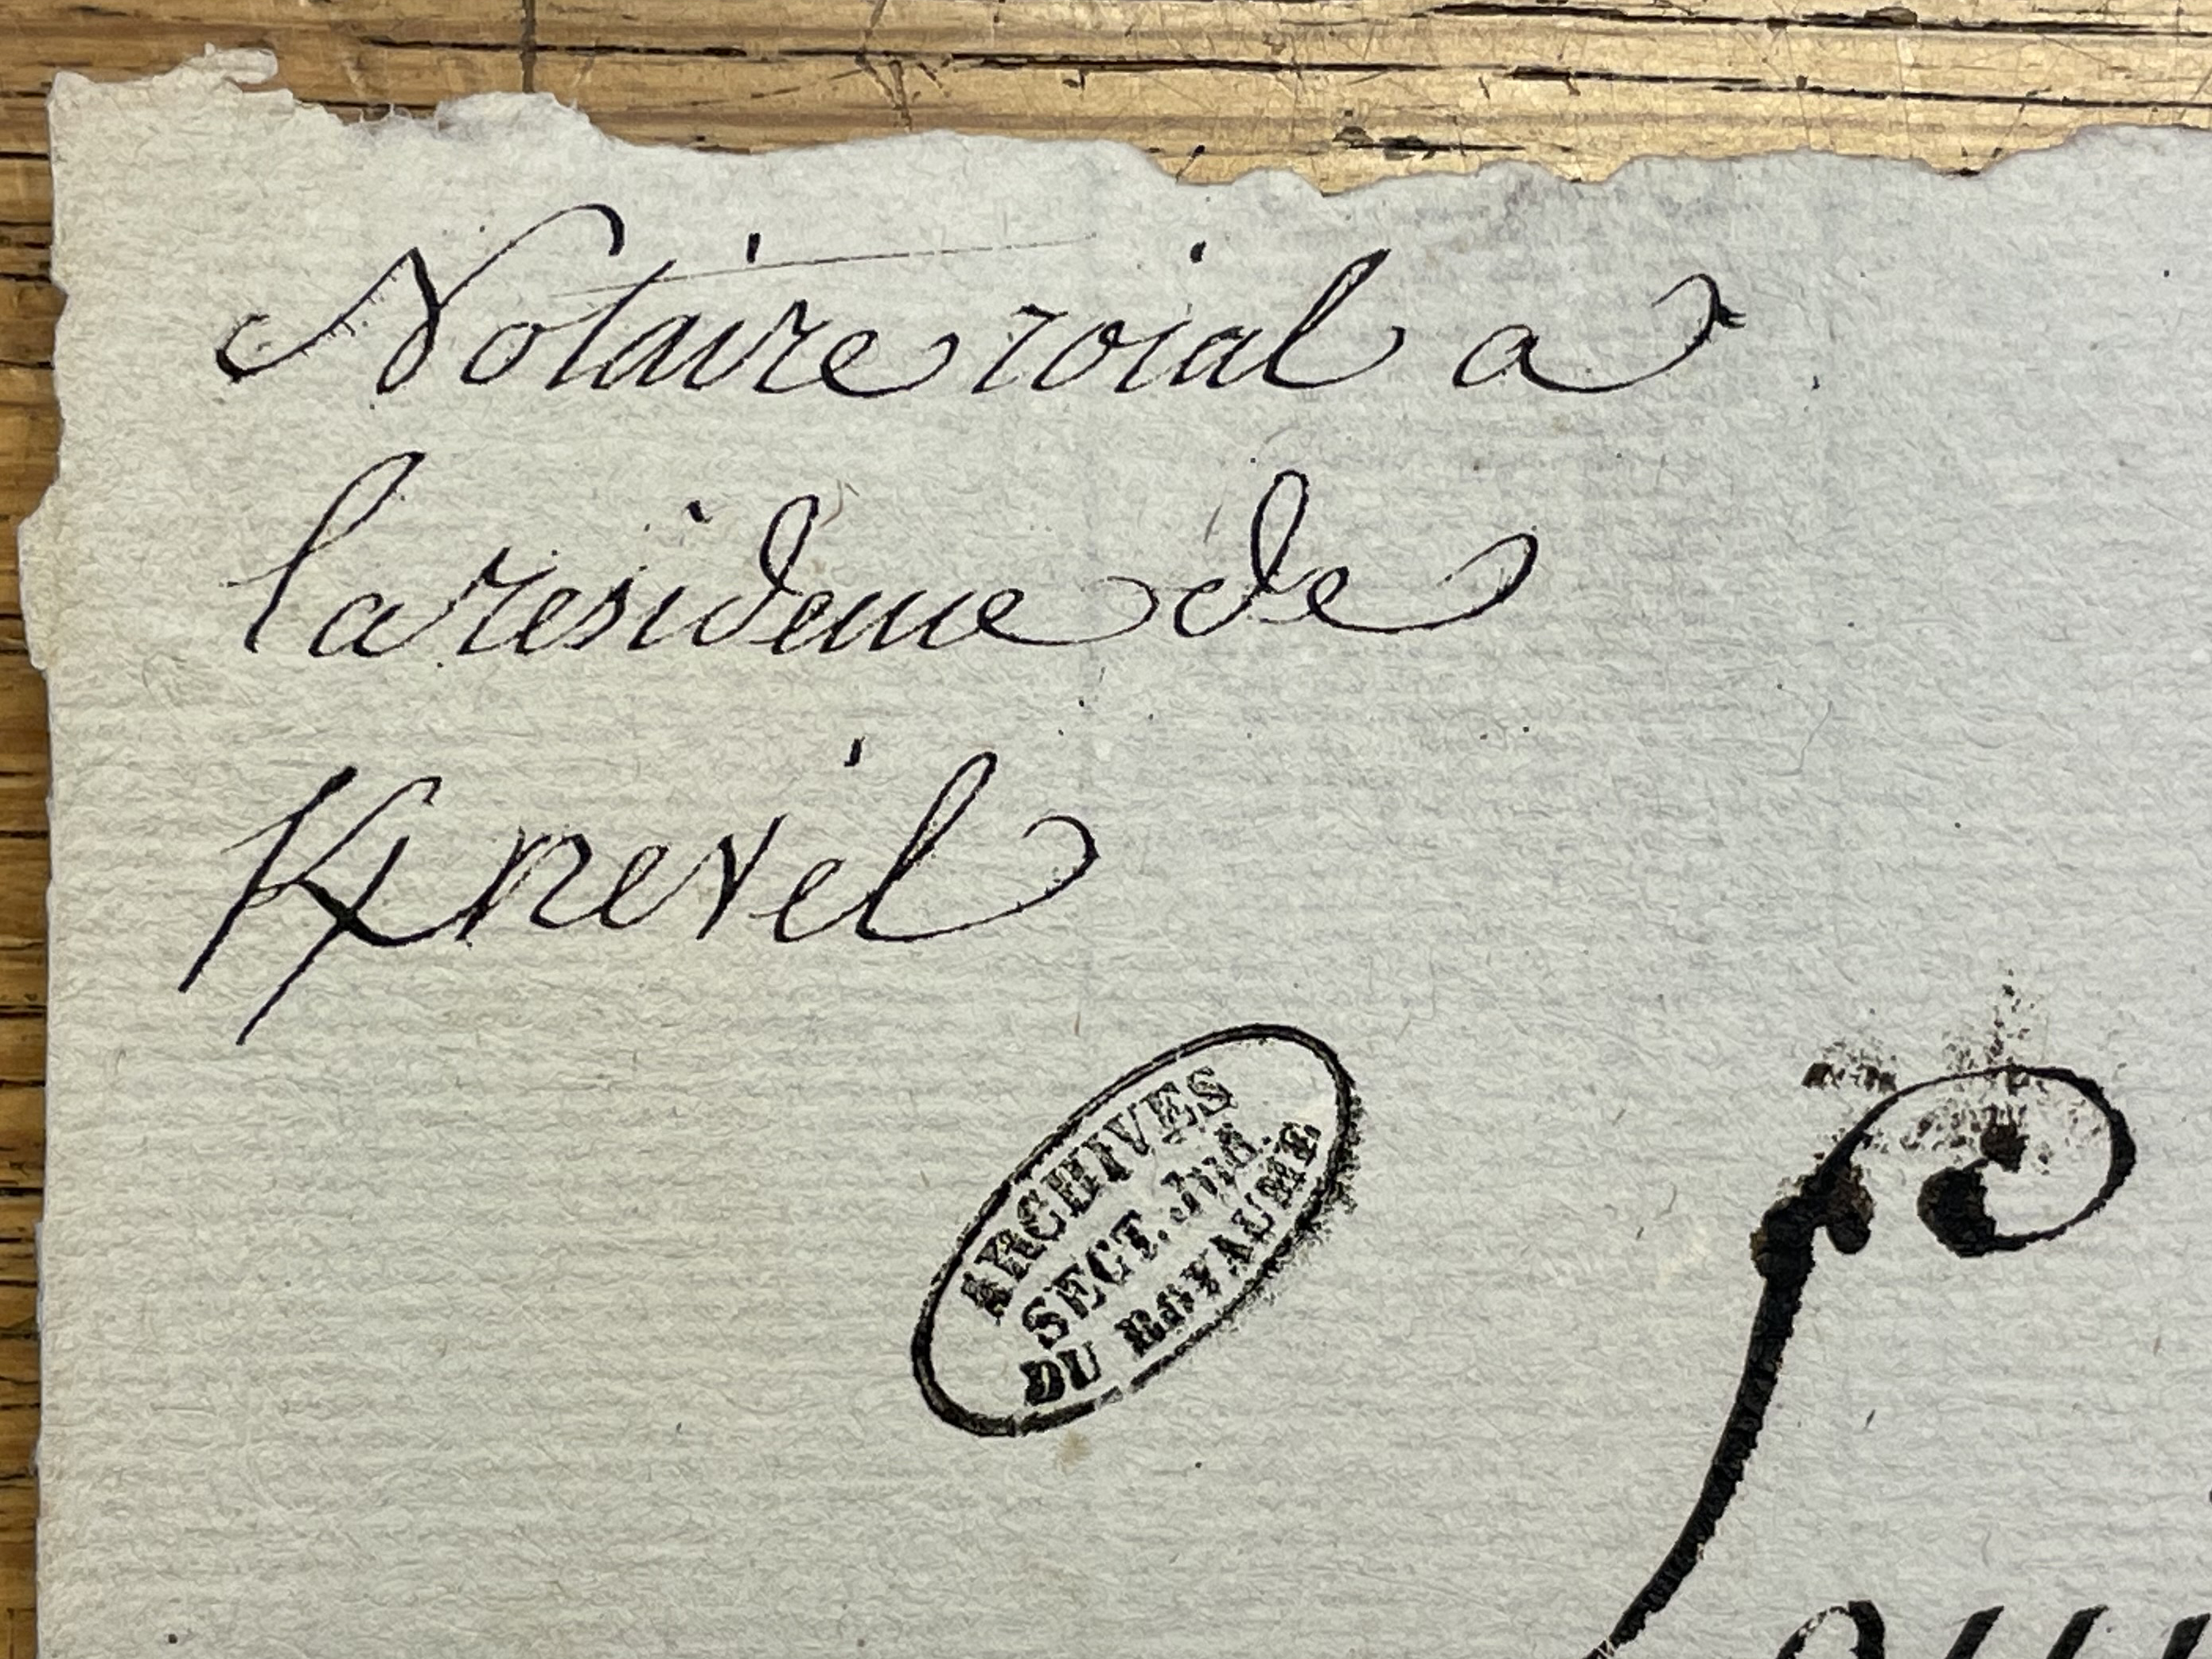 Notaire roial a
la residence de
Kernevel
ARCHIVES
SECT. Jud.
DU ROYAUME
Loui